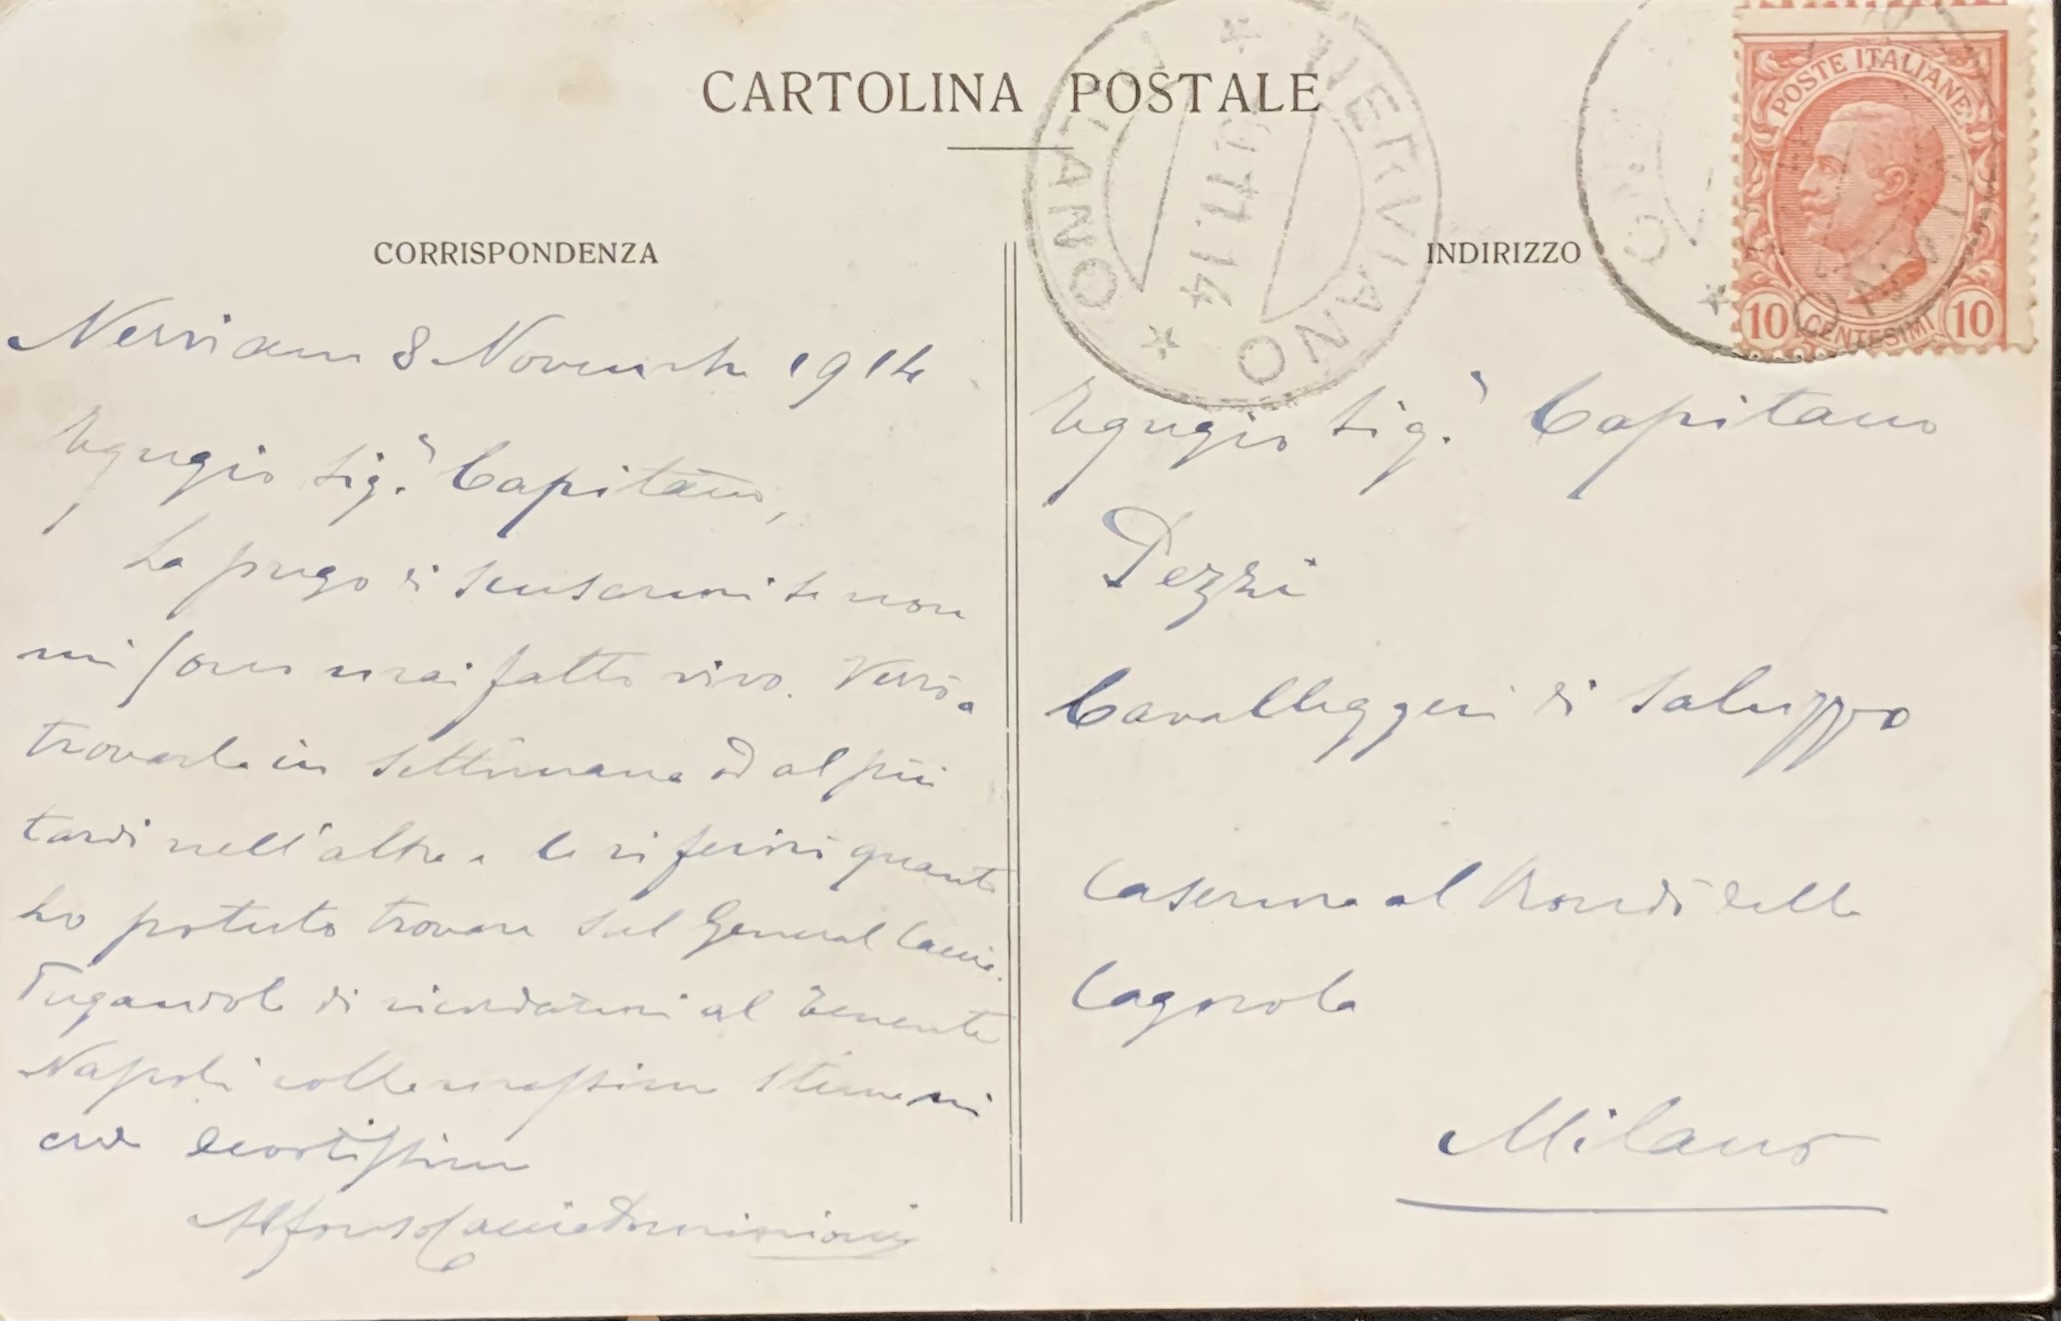 CARTOLINA POSTALE
NERVIANO
MILANO
9.11.14
POSTE ITALIANE
10 CENTESIMI 10
CORRISPONDENZA
Nerviano 8 Novembre 1914
Egregio Sig.r Capitano,
La prego di scusarmi se non
mi sono mai fatto vivo. Verrò a
trovarla in settimana od al più
tardi nell'altra e le riferirò quanto
ho potuto trovare sul General Caccia.
Pregandola di ricordarmi al Tenente
Napoli colla massima stima mi
creda devotissimo
Alfonso Caccia Dominioni
INDIRIZZO
Egregio Sig.r Capitano
Pezzi
Cavalleggeri di Saluzzo
Caserma al Rondò della
Cagnola
Milano